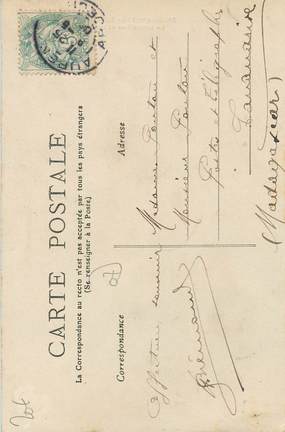 CARTE POSTALE
La Correspondance au recto n'est pas acceptée par tous les pays étrangers
(Se renseigner à la Poste)
Correspondance
Adresse
affectueux souvenir
Madame Toulon et
Monsieur Toulon
Postes et télégraphes
Tananarive
(Madagascar)